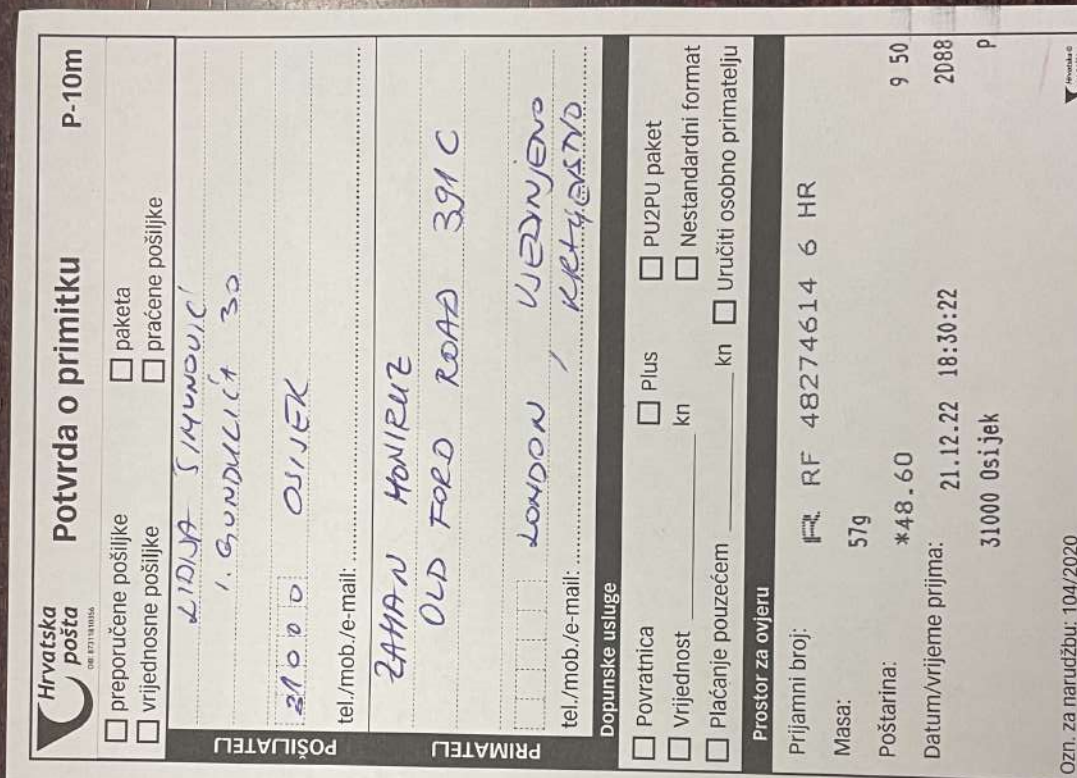 Hrvatska pošta Potvrda o primitku P-10m
preporučene pošiljke paketa
vrijednosne pošiljke praćene pošiljke
POŠILJATELJ
LIDIJA ŠIMUNOVIĆ
I. GUNDULIĆA 30
31000 OSIJEK
tel./mob./e-mail:
PRIMATELJ
ZAMAN MONIRUZ
OLD FORD ROAD 391 C
LONDON , UJEDINJENO
KRALJEVSTVO
tel./mob./e-mail:
Dopunske usluge
Povratnica Plus PU2PU paket
Vrijednost kn Nestandardni format
Plaćanje pouzećem kn Uručiti osobno primatelju
Prostor za ovjeru
Prijamni broj: R RF 48274614 6 HR
Masa: 57g
Poštarina: *48.60 9 50
Datum/vrijeme prijma: 21.12.22 18:30:22 2D88
31000 Osijek P
Ozn. za narudžbu: 104/2020